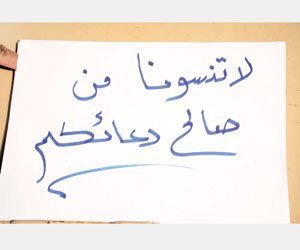 لا تنسونا من
صالح دعائكم